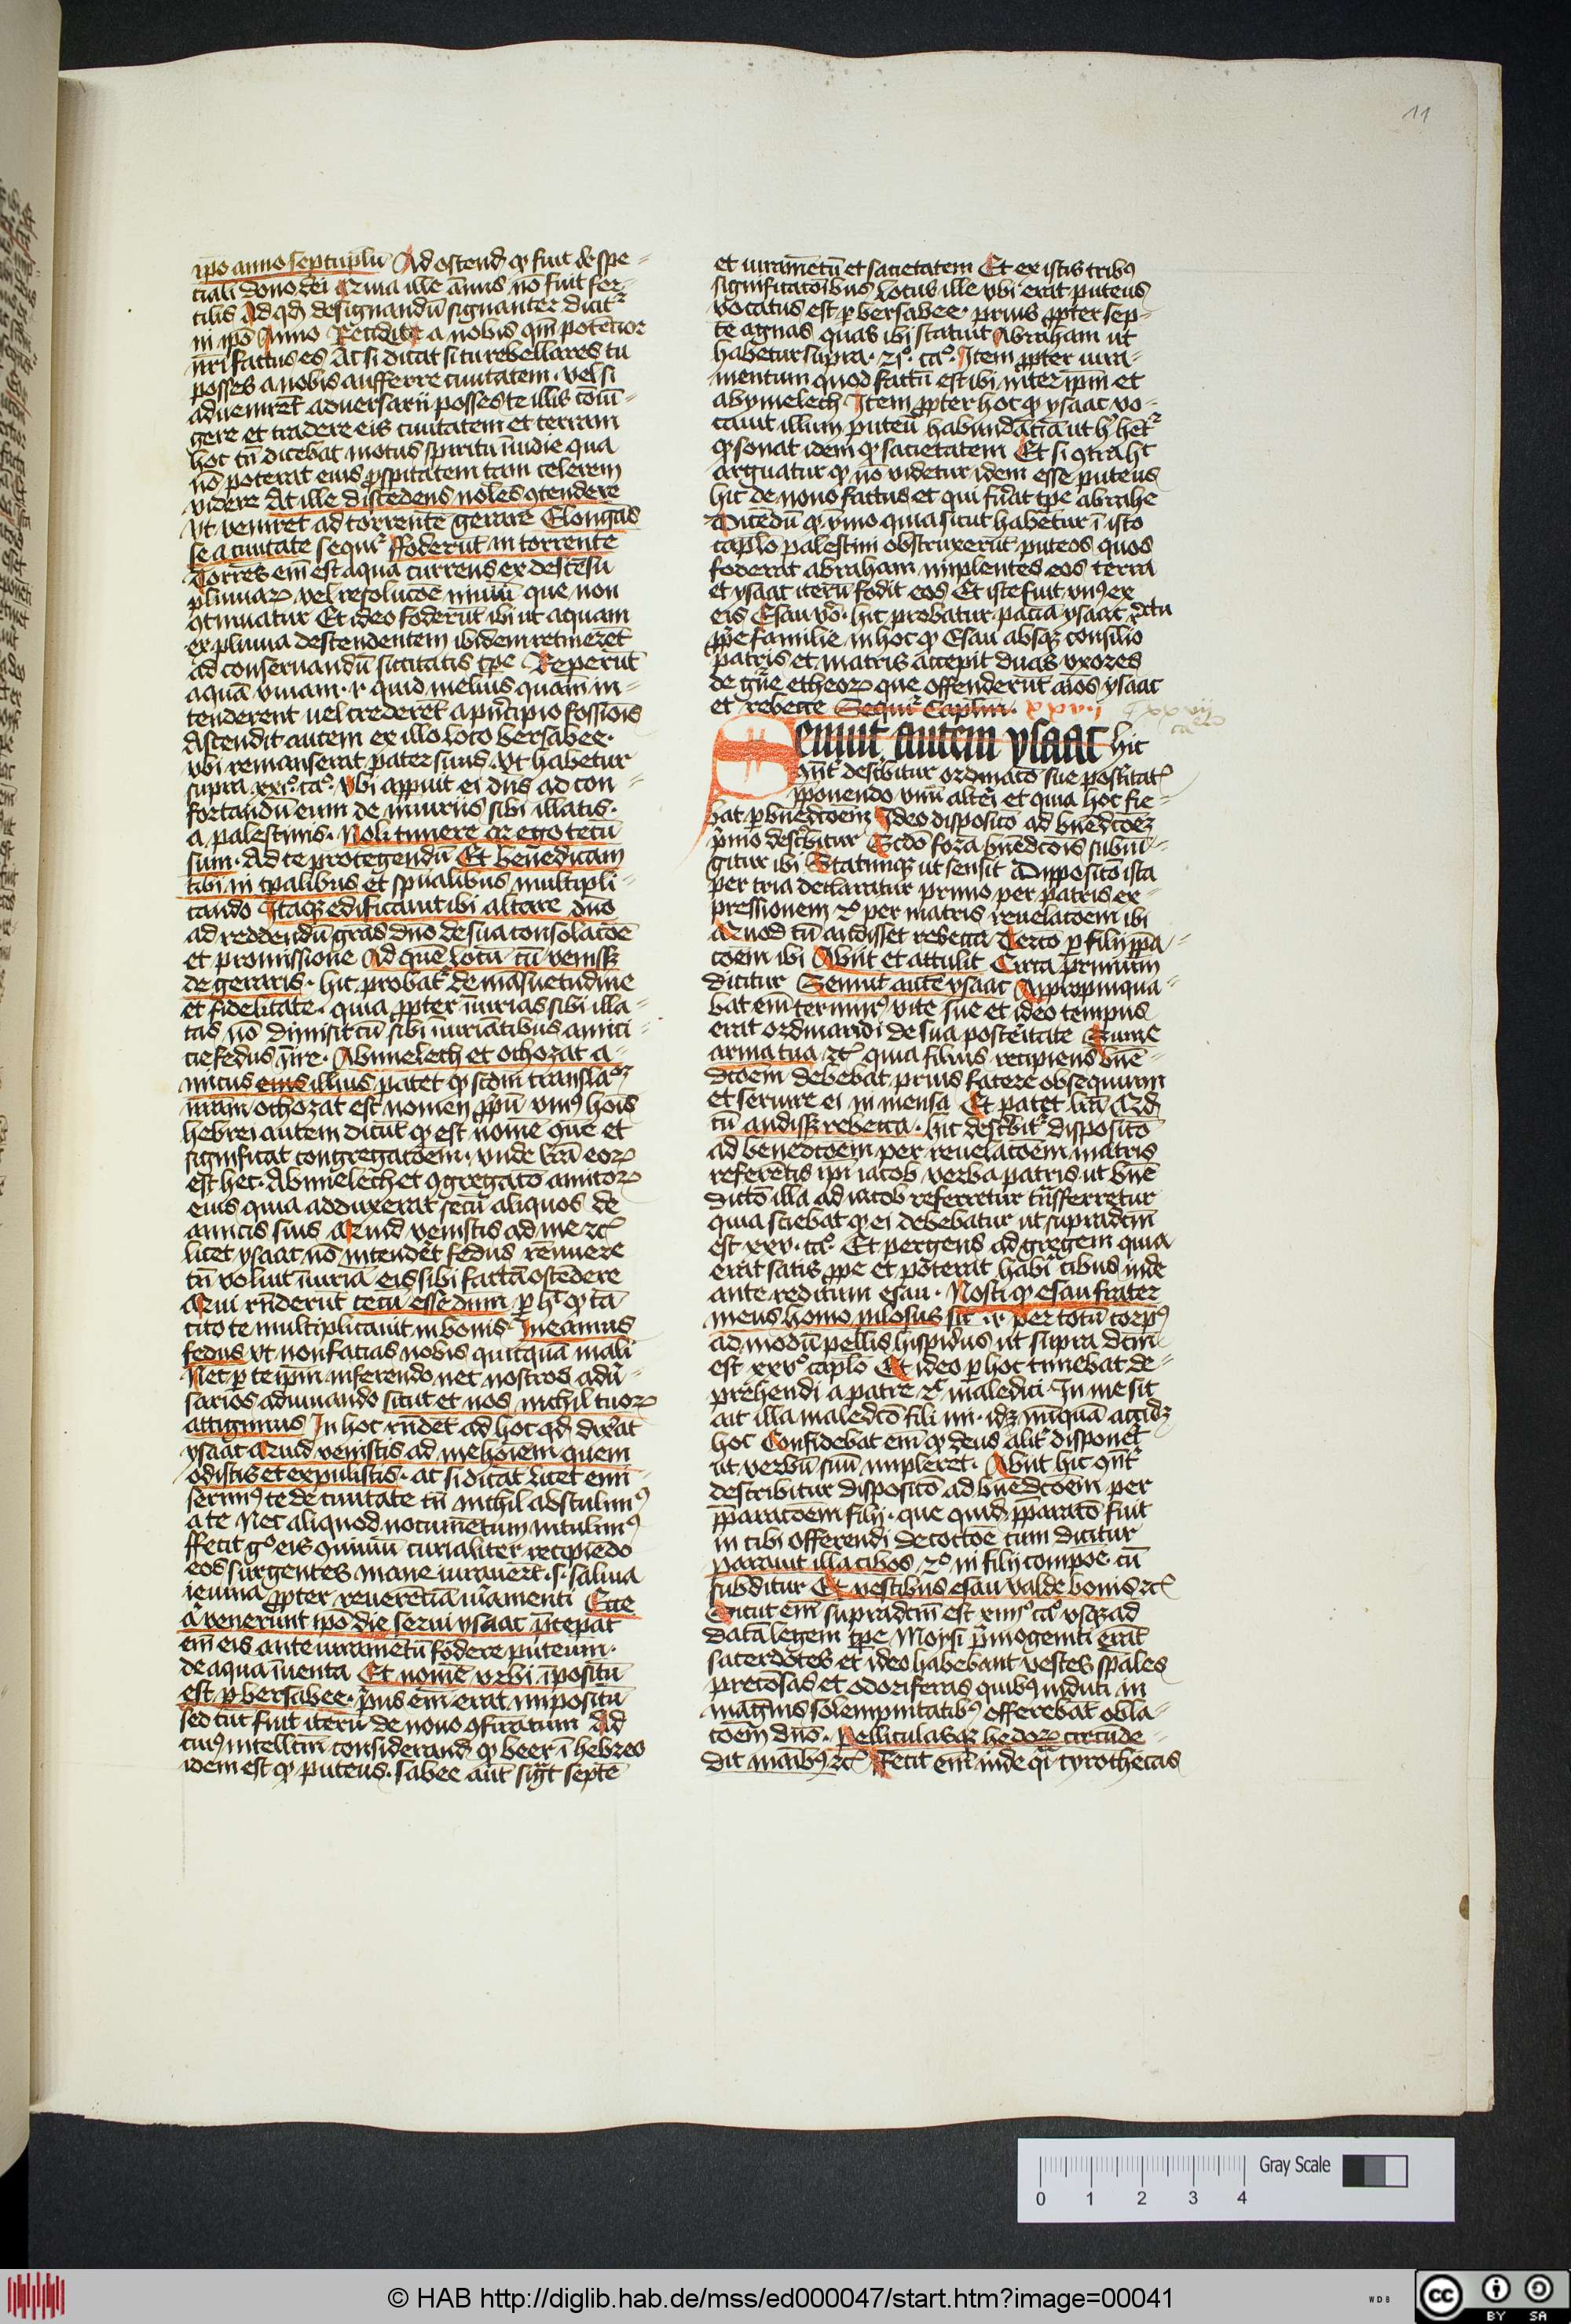 11
ip̄o anno septuplū Ad ostend̄ ꝙ fuit de spe-
ciali dono dei Quia ille ānus nō fuit fer-
tilis Ad qd̄ designandū signanter dicit᷑
in ip̄o Anno Recedite a nobis qm̄ potētior
nr̄i factus es Ac si dicat si tu rebellares tu
posses a nobis aufferre ciuitatem. vel si
aduenirēt aduersarij posses te illis cōiū-
gere et tradere eis ciuitatem et terram
hoc tn̄ dicebāt motus spiritu īuidie qua
nō poterāt eius ꝓspitatem tam celerem
videre At ille discedens noles ꝯtendere
vt veniret ad torrentē gerare Elongās
se a ciuitate sequit᷑ ffoderūt in torrente
Torrēs em̄ est aqua currens ex descēsu
pluuiaꝝ vel resolucōe niuiū que non
ꝯtinuatur Et ideo foderūt ibi ut aquam
ex pluuia descendentem ibidem retinerēt
ad conseruandū siccitatis tp̄e Reperūt
aquā viuam. i. quid melius quam in-
tenderent uel crederēt a pͥncipio fossiōis
Ascendit autem ex illo loco bersabee.
vbi remanserat pater suus. vt habetur
supra xxi.º ca.º vbi appuit ei dn̄s ad con-
fortandū eum de iniurijs sibi illatis.
a palestinis. Noli timere qr ego tecū
sum. Ad te protegendū Et benedicam
tibi in tp̄alibus et spūalibus multipli-
cando Itaqꝫ edificauit ibi altare dn̄o
ad reddendū gr̄as dn̄o de sua consolacōe
et promissione Ad quē locū cū venissꝫ
de geraris. hic probat᷑ de māsuetudine
et fidelitate. quia ꝓpter iniurias sibi illa-
tas nō dimisit cū sibi iniuriātibus amici-
cie fedus inire. Abimelech et othozat a-
micus eius illius patet ꝙ scdm transla-
nr̄am othozat est nomen ꝓpū vnius hoīs
hebrei autem dicūt ꝙ est nomē qūe et
significat congregacōem. vnde lrā eoꝝ
est hec. Abimelech et ꝯgregatō amicoꝝ
eius quia adduxerat secū aliquos de
amicis suis Quid venistis ad me ⁊c̄
licet ysaac nō intenderet fedus rēnuere
tn̄ voluit iniuriā eis sibi factā ostēdere
Qui rn̄derūt tecū esse dn̄m ꝑ hͨ ꝙ tā
cito te multiplicauit in bonis. Ineamus
fedus vt non facias nobis quicquā mali
Nec ꝑ te ip̄m inferendo nec nostros adū-
sarios adiuuando sicut et nos nichil tuoꝝ
attigimus In hoc rn̄det ad hoc qd̄ dix̄at
ysaac Quid venistis ad me hoīem quem
odistis et expulistis. ac si dicāt licet emi-
serimꝰ te de ciuitate tn̄ nichil abstulimꝰ
a te Nec aliquod nocumētum intulimꝰ
ffecit gͦ eis ꝯuiuiū curialiter recipiēdo
eos surgentes mane iurauerūt. s. saliua
ieiuna ꝓpter reuerētiā iūamenti Ecce
a͛ venerunt ip̄o die serui ysaac īcepāt
em̄ eis ante iuramētū fodere puteum.
de aqua īuenta Et nomē vrbi īpositū
est ꝑ bersabee. pͥus em̄ erat impositū
sed tūc fuit iterū de nouo ꝯfirātum Ad
cuiꝰ intellectū considerand̄ ꝙ beer ī hebreo
idem est ꝙ puteus. sabee aūt sigt septē
et iuramētū et sacietatem Et ex istis tribꝰ
significatōibus locus ille vbi erat puteus
vocatus est ꝑ bersabee. prius ꝓpter sep-
tē agnas quas ibi statuit Abraham ut
habetur supra. 21.º ca.º Item ꝓpter iura-
mentum quod factū est ibi inter ip̄m et
abymelech Item ꝓpter hoc ꝙ ysaac vo-
cauit illum puteū habundāciā ut hͥ het᷑
ꝙ sonat idem ꝙ sacietatem Et si ꝯtra hͨ
arguatur ꝙ nō videtur idem esse puteus
hic de nouo factus et qui fūat tp̄e abrahe
Dicēdū ꝙ ymo quia sicut habetur ī isto
cap̄lo palestini obstruxerūt puteos quos
foderat abraham implentes eos terra
et ysaac iterū fodit eos Et iste fuit vnꝰ ex
eis Esau vō. hic probatur paciā ysaac
ꝓpe familie in hoc ꝙ Esau absqꝫ consilio
patris et matris accepit duas vxores
de gn̄e etheoꝝ que offenderūt aīos ysaac
et rebecce Sequit᷑ Caplm. xxvij
Senuit autem ysaac hic
ꝯnt᷑ describitur ordinacō sue posteritat᷑
ꝓponendo vnū alteri et quia hoc fie-
bat ꝑ bn̄edcōem Ideo disposicō ad bn̄edcōeꝫ
pͥmo describitur Scdo forma bn̄edcōis subiū-
gitur ibi Statimqꝫ ut sensit Dispositō ista
per tria declaratur primo per patris ex-
pressionem 2º per matris reuelacōem ibi
Quod cū audisset rebecca Tercō ꝑ filij p̄pa-
cōem ibi Abijt et attulit Circa primum
dicitur Senuit autē ysaac Appropinqua-
bat em̄ terminꝰ vite sue et ideo tempus
erat ordinandi de sua posteritate Sume
arma tua ⁊c̄ quia filius recipiens bn̄e-
dcōem debebat prius facere obsequium
et seruire ei in mensa Et patet lrā Qd̄
cū audissꝫ rebecca. hic describit᷑ disposicō
ad benedcōem per reuelacōem matris
referētis ip̄i iacob verba patris ut bn̄e
dictō illa ad iacob referretur trāsferretur
quia sciebat ꝙ ei debebatur ut supradcm̄
est xxv. ca.º Et pergens ad gregem quia
erat satis ꝓpe et poterat haberi cibus inde
ante reditum esau. Nosti ꝙ esau frater
meus homo pilosus sit .i. per totū corpꝰ
ad modū pellis hispidus ut supra dcm̄
est xxvº caplo Et ideo ꝑ hoc timebat de-
prehendi a patre ⁊ maledici. In me sit
ait illa maledcō fili mi. idꝫ nūquā accidꝫ
hoc Confidebat em̄ ꝙ deus alit᷑ disponet
ut verbū suū impleret. Abijt hic ꝯnt᷑
describitur disposicō ad bn̄edcōem per
p̄paracōem filij. que quid p̄paracō fuit
in cibi offerendi decoctōe cum dicitur
parauit illa cibos 2º in filij compoe cū
subditur Et vestibus esau valde bonis ⁊c̄
Sicut em̄ supradcm̄ est xiiijº caº vsqꝫ ad
datā legem tp̄e Moysi pͥmogeniti erāt
sacerdotes et ideo habebant vestes sp̄ales
preciosas et odoriferas quibꝰ induti in
magnis solempnitatibꝰ offerebāt obla-
cōem dn̄o. Pelliculasqꝫ hedoꝝ circūde-
dit manibꝰ ⁊c̄ Fecit em̄ inde qͣi cyrothecas
0 1 2 3 4
Gray Scale
© HAB http://diglib.hab.de/mss/ed000047/start.htm?image=00041
WDB
cc BY SA